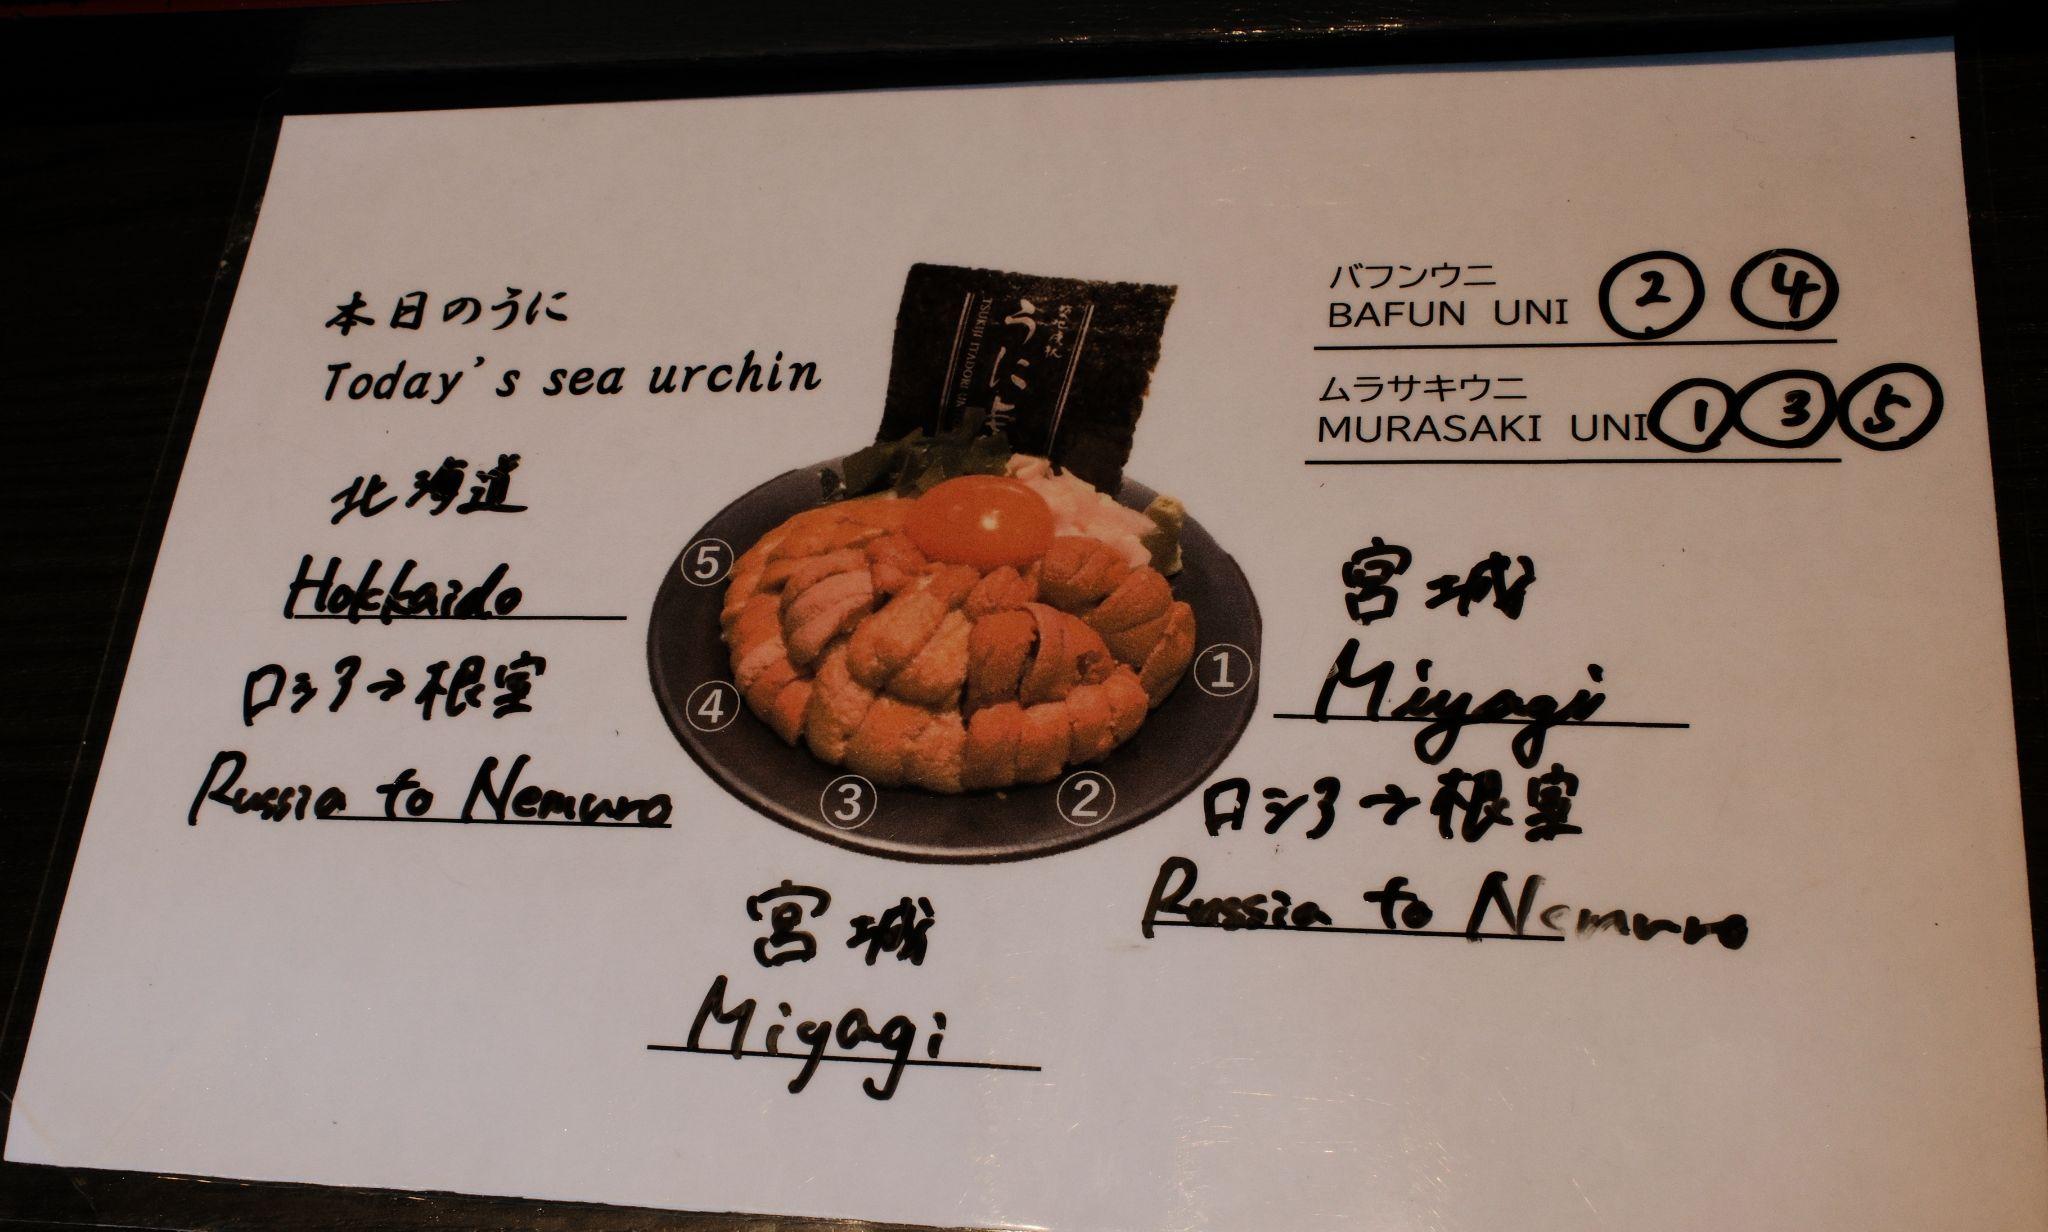 本日のうに
Today's sea urchin
バフンウニ
BAFUN UNI ② ④
ムラサキウニ
MURASAKI UNI ① ③ ⑤
うに
TSUKIJI ITADORI
北海道
Hokkaido
ロシア→根室
Russia to Nemuro
⑤
④
③
②
①
宮城
Miyagi
ロシア→根室
Russia to Nemuro
宮城
Miyagi